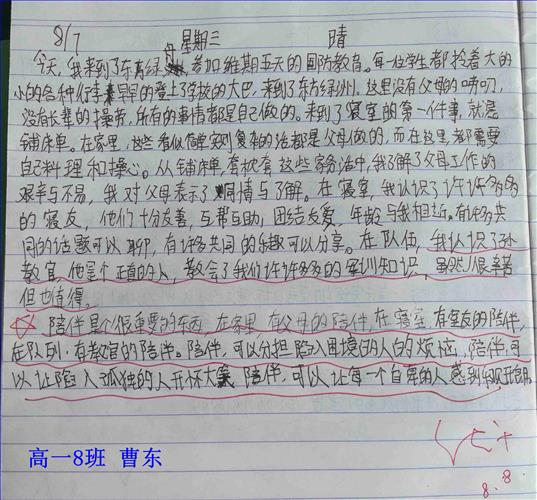 8/7 星期三 晴
今天,我来到了东方绿舟,参加维期五天的国防教育。每一位学生都拎着大的
小的各种行李早早的登上了学校的大巴,来到了东方绿洲,这里没有父母的唠叨,
没有长辈的操劳,所有的事情都是自己做的。来到了寝室的第一件事,就是
铺床单。在家里,这些看似简单实则复杂的活都是父母做的,而在这里,都需要
自己料理和操心。从铺床单,套枕套这些家务活中,我了解了父母工作的
艰辛与不易,我对父母表示了同情与了解。在寝室,我认识了许许多多
的寝友,他们十分友善,互帮互助,团结友爱,年龄与我相近。有许多共
同的话题可以聊,有许多共同的乐趣可以分享。在队伍,我认识了孙
教官,他是个正直的人,教会了我们许许多多的军训知识,虽然很辛苦
但也值得。
陪伴是个很重要的东西,在家里,有父母的陪伴,在寝室,有室友的陪伴,
在队列,有教官的陪伴。陪伴,可以分担陷入困境的人的烦恼,陪伴,可
以让陷入孤独的人开怀大笑,陪伴,可以让每一个自卑的人感到开朗。
高一8班 曹东
8.8